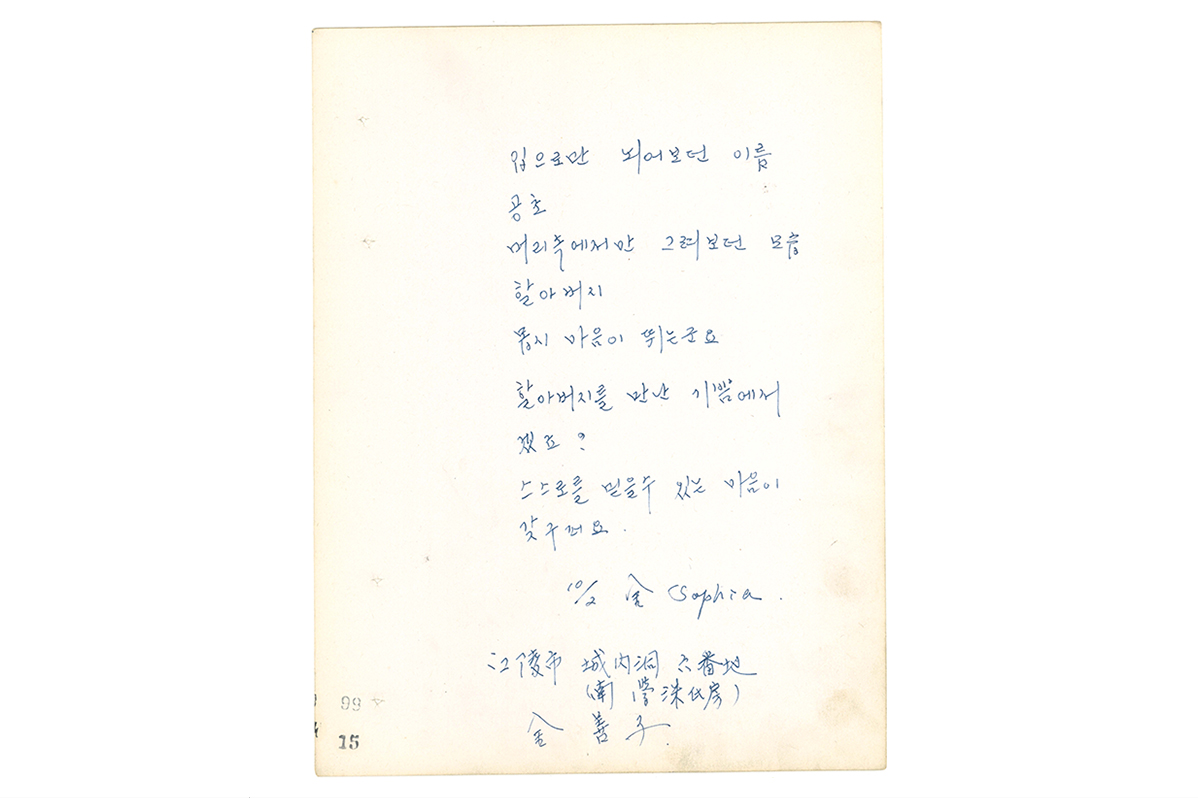 입으로만 뇌어보던 이름
공초
머리속에서만 그려보던 모습
할아버지
몹시 마음이 뛰는군요
할아버지를 만난 기쁨에서
겠죠?
스스로를 믿을수 있는 마음이
갖구퍼요.
10/2 金 Sophia.
江陵市 城内洞 六番地
(南 房)
金 善子
99
15